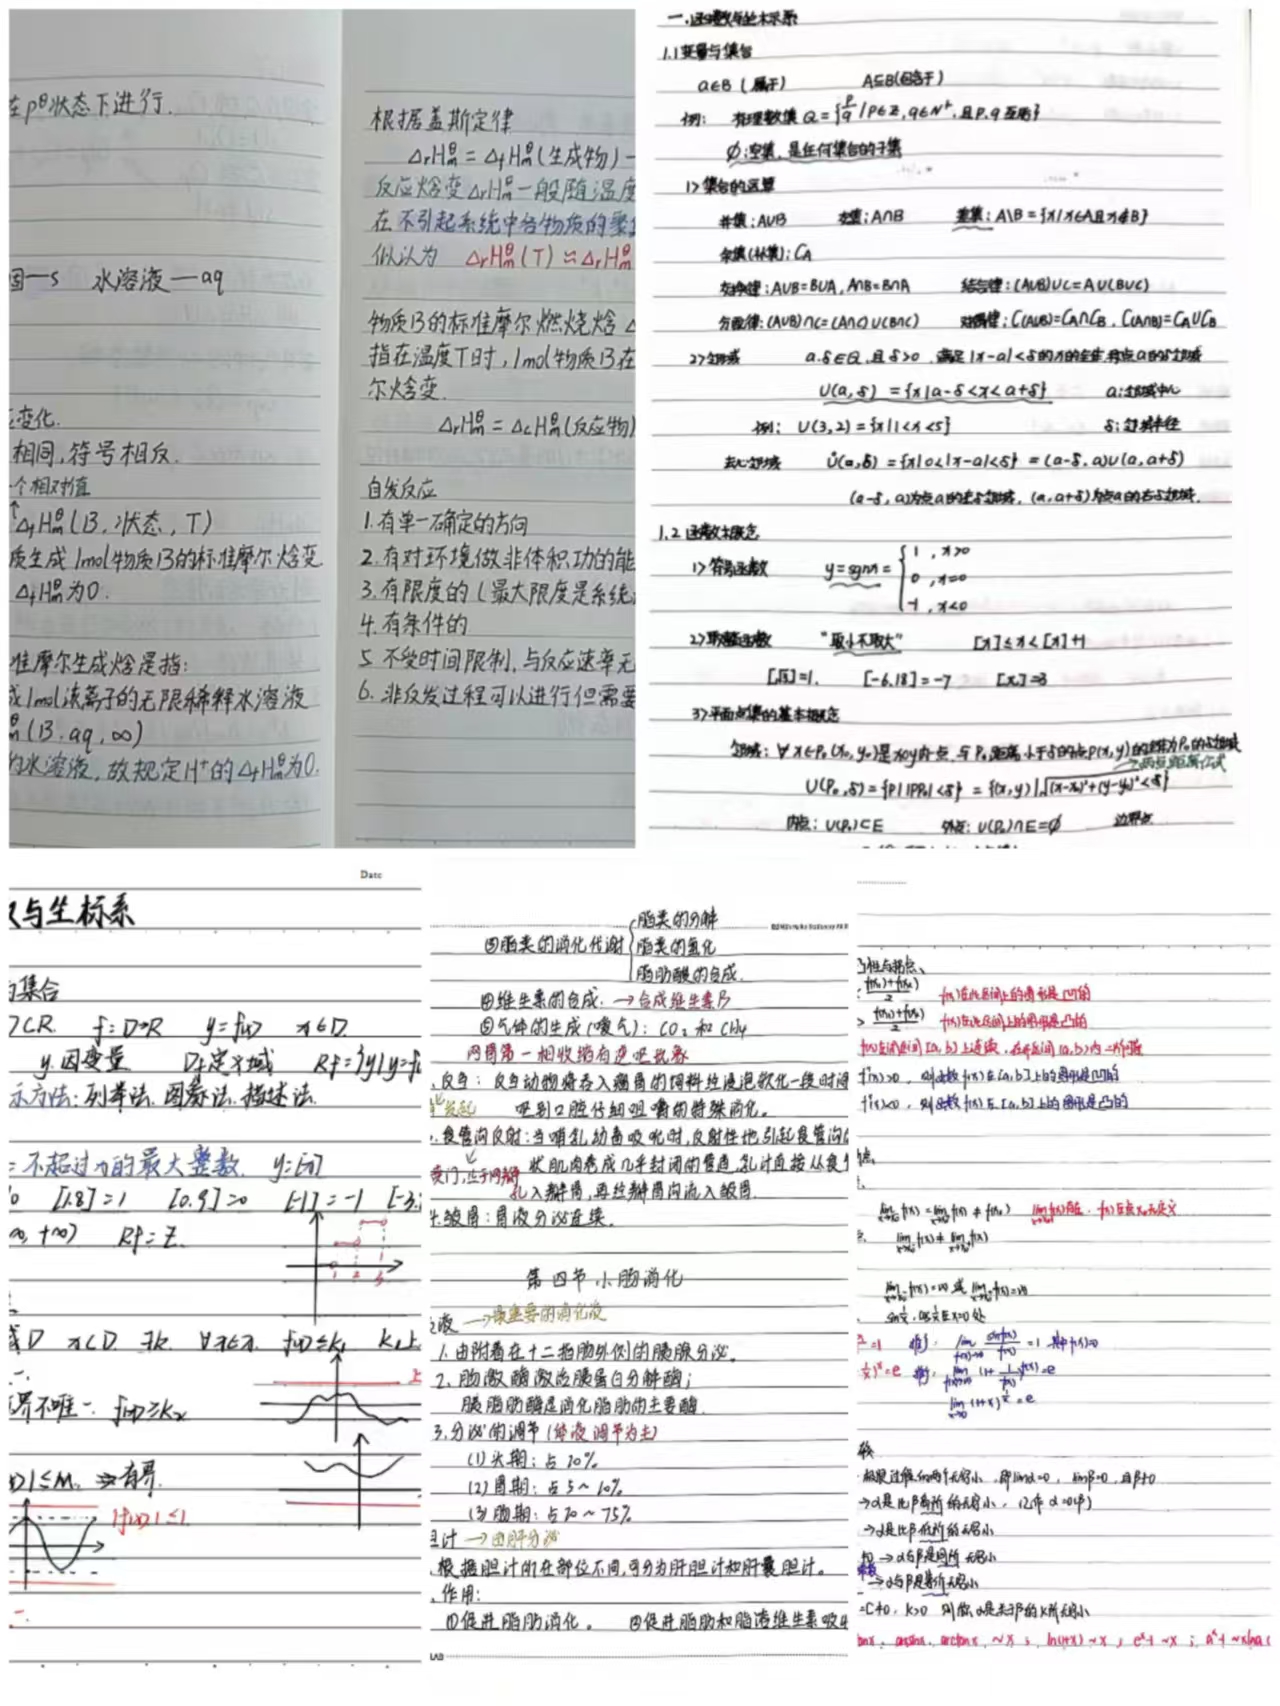 在pθ状态下进行.
固—s 水溶液—aq
变化.
相同,符号相反.
个相对值
ΔfHmθ(B,状态,T)
质生成1mol物质B的标准摩尔焓变
ΔfHmθ为0.
准摩尔生成焓是指:
成1mol该离子的无限稀释水溶液
(B,aq,∞)
的水溶液,故规定H⁺的ΔfHmθ为0.
根据盖斯定律
ΔrHmθ=ΔfHmθ(生成物)—
反应焓变ΔrHmθ一般随温度
在不引起系统中各物质的聚
似认为 ΔrHmθ(T)≈ΔrHmθ
物质B的标准摩尔燃烧焓
指在温度T时,1mol物质B在
尔焓变.
ΔrHmθ=ΔcHmθ(反应物)
自发反应
1.有单一确定的方向
2.有对环境做非体积功的能
3.有限度的(最大限度是系统
4.有条件的
5.不受时间限制,与反应速率无
6.非自发过程可以进行但需要
一.函数与坐标系
1.1变量与集合
a∈B(属于) A⊆B(包含于)
例: 有理数集Q={p/q|p∈Z,q∈N⁺,且p.q互质}
∅:空集,是任何集合的子集
1>集合的运算
并集:A∪B 交集:A∩B 差集:A\B={x|x∈A且x∉B}
余集(补集):CA
交换律:A∪B=B∪A,A∩B=B∩A 结合律:(A∪B)∪C=A∪(B∪C)
分配律:(A∪B)∩C=(A∩C)∪(B∩C) 对偶律:C(A∪B)=CA∩CB,C(A∩B)=CA∪CB
2>邻域 a.δ∈R,且δ>0,满足|x-a|<δ的x的全体,称点a的δ邻域
U(a,δ)={x|a-δ<x<a+δ} a:邻域中心
例: U(3,2)={x|1<x<5} δ:邻域半径
去心邻域 Ů(a,δ)={x|0<|x-a|<δ}=(a-δ,a)∪(a,a+δ)
(a-δ,a)为点a的左δ邻域,(a,a+δ)为点a的右δ邻域.
1.2函数概念
1>符号函数 y=sgnx= { 1,x>0
0,x=0
-1,x<0
2>取整函数 "取小不取大" [x]≤x<[x]+1
[√3]=1. [-6.18]=-7 [π]=3
3>平面点集的基本概念
U(P₀,δ)={P||PP₀|<δ}={(x,y)|√(x-x₀)²+(y-y₀)²<δ}
→两点距离公式
内点:U(P₀)⊂E 外点:U(P₀)∩E=∅ 边界点
Date
与坐标系
集合
f:D→R y=f(x) x∈D.
y.因变量 Df定义域 Rf={y|y=f
示方法:列举法.图表法.描述法.
=不超过x的最大整数. y=[x]
[1.8]=1 [0.9]=0 [-1]=-1 [-3.
+∞) Rf=Z.
f(x)≤k₁
界不唯一. f(x)≥k₂
|≤M. ⇒有界.
|f(x)|≤1.
③脂类的消化代谢 { 脂类的分解
脂类的氢化
脂肪酸的合成.
④维生素的合成.→合成维生素B
⑤气体的生成(嗳气):CO₂和CH₄
网胃第一相收缩有逆呕现象
.反刍:反刍动物将吞入瘤胃的饲料经浸泡软化一段时间
逆呕到口腔仔细咀嚼的特殊消化。
.食管沟反射:当哺乳幼畜吸吮时,反射性地引起食管沟
状肌肉卷成几乎封闭的管道,乳汁直接从食
入瓣胃,再经瓣胃沟流入皱胃.
.皱胃:胃液分泌连续.
第四节 小肠消化
液→最重要的消化液
1.由附着在十二指肠外侧的胰腺分泌。
2.肠激酶激活胰蛋白分解酶;
胰脂肪酶是消化脂肪的主要酶.
3.分泌的调节(体液调节为主)
(1)头期:占20%
(2)胃期:占5~10%
(3)肠期:占70~75%
胆汁→由肝分泌
.根据胆汁所在部位不同,可分为肝胆汁和胆囊胆汁。
.作用:
①促进脂肪消化。 ②促进脂肪和脂溶维生素吸收
LAB
性与拐点、
f(x)在此区间上的图形是凹的
f(x)在此区间上的图形是凸的
f(x)在闭区间[a,b]上连续,在开区间(a,b)内二阶可导
f''(x)>0, 则函数f(x)在[a,b]上的图形是凹的
f''(x)<0, 则函数f(x)在[a,b]上的图形是凸的
=1 推: lim sinf(x)/f(x)=1
=e 推: lim(1+1/f(x))^f(x)=e
lim(1+x)^(1/x)=e
→α是比β高阶的无穷小,(记作α=o(β))
→α是比β低阶的无穷小
≠0→α与β是同阶无穷小
→α与β是等价无穷小
=C≠0,k>0 则称α是关于β的k阶无穷小
tanx,arcsinx,arctanx,~x; ln(1+x)~x; eˣ-1~x; aˣ-1~xlna(